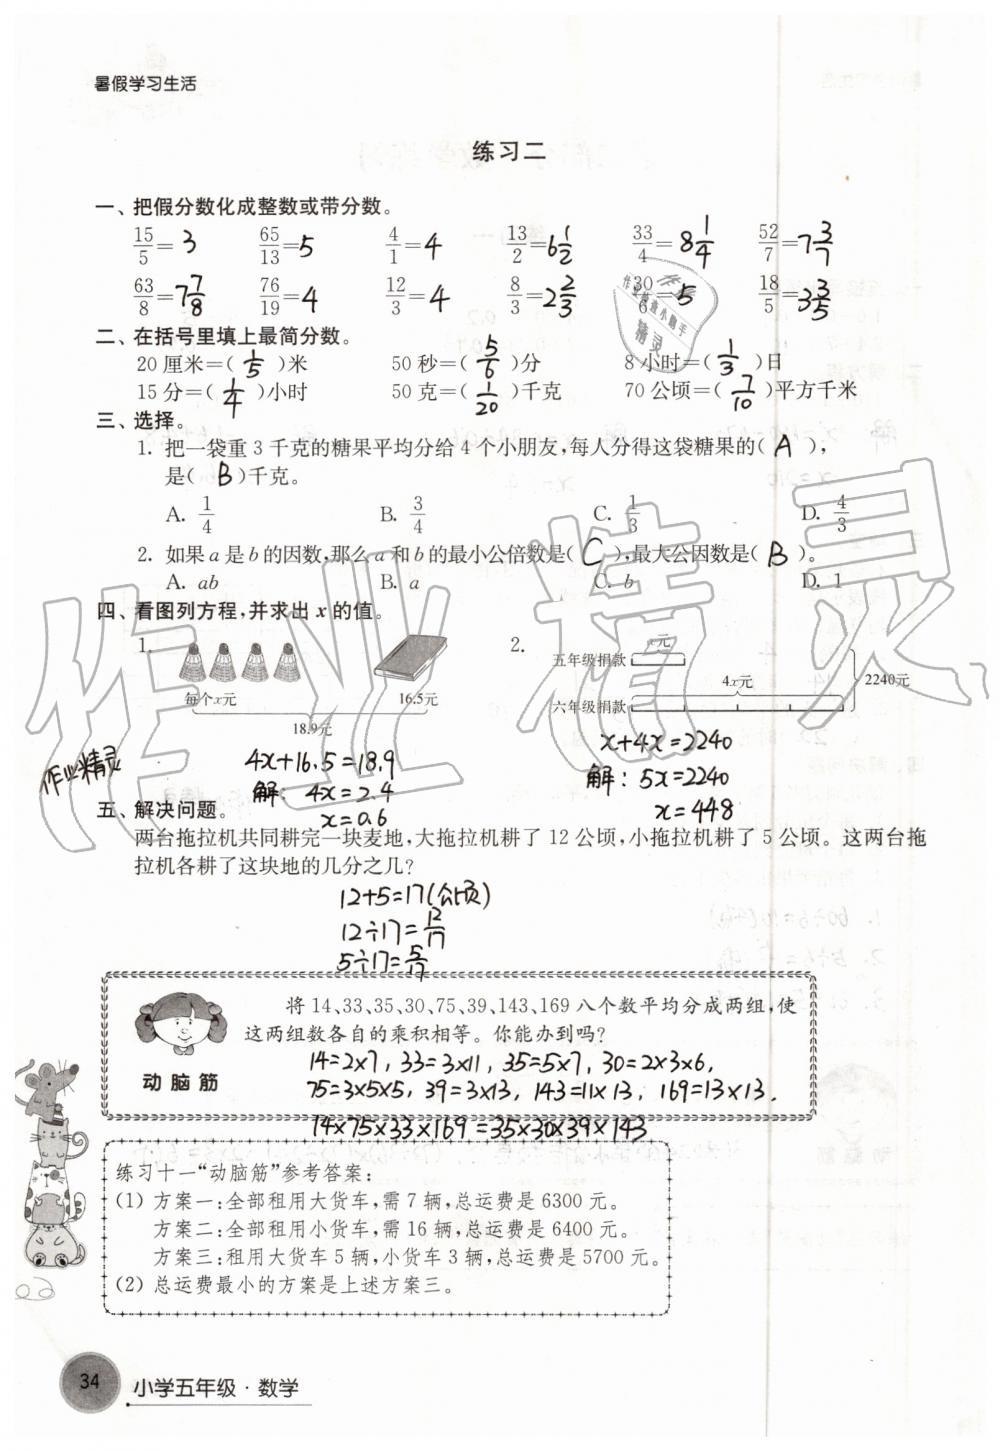 暑假学习生活
练习二
一、把假分数化成整数或带分数。
15/5=3 65/13=5 4/1=4 13/2=6 1/2 33/4=8 1/4 52/7=7 3/7
63/8=7 7/8 76/19=4 12/3=4 8/3=2 2/3 30/6=5 18/5=3 3/5
二、在括号里填上最简分数。
20厘米=( 1/5 )米 50秒=( 5/6 )分 8小时=( 1/3 )日
15分=( 1/4 )小时 50克=( 1/20 )千克 70公顷=( 7/10 )平方千米
三、选择。
1. 把一袋重3千克的糖果平均分给4个小朋友,每人分得这袋糖果的( A ),
是( B )千克。
A. 1/4 B. 3/4 C. 1/3 D. 4/3
2. 如果a是b的因数,那么a和b的最小公倍数是( C ),最大公因数是( B )。
A. ab B. a C. b D. 1
四、看图列方程,并求出x的值。
1.
每个x元 16.5元
18.9元
4x+16.5=18.9
解: 4x=2.4
x=0.6
2.
x元
五年级捐款
4x元
2240元
六年级捐款
x+4x=2240
解: 5x=2240
x=448
作业精灵
五、解决问题。
两台拖拉机共同耕完一块麦地,大拖拉机耕了12公顷,小拖拉机耕了5公顷。这两台拖
拉机各耕了这块地的几分之几?
12+5=17(公顷)
12÷17=12/17
5÷17=5/17
动脑筋
将14、33、35、30、75、39、143、169八个数平均分成两组,使
这两组数各自的乘积相等。你能办到吗?
14=2×7, 33=3×11, 35=5×7, 30=2×3×6,
75=3×5×5, 39=3×13, 143=11×13, 169=13×13.
14×75×33×169=35×30×39×143
练习十一“动脑筋”参考答案:
(1) 方案一:全部租用大货车,需7辆,总运费是6300元。
方案二:全部租用小货车,需16辆,总运费是6400元。
方案三:租用大货车5辆,小货车3辆,总运费是5700元。
(2) 总运费最小的方案是上述方案三。
34
小学五年级·数学
作业精灵